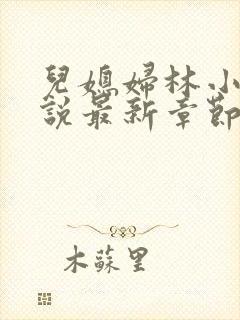 兒媳婦林小
說最新章節
木蘇里